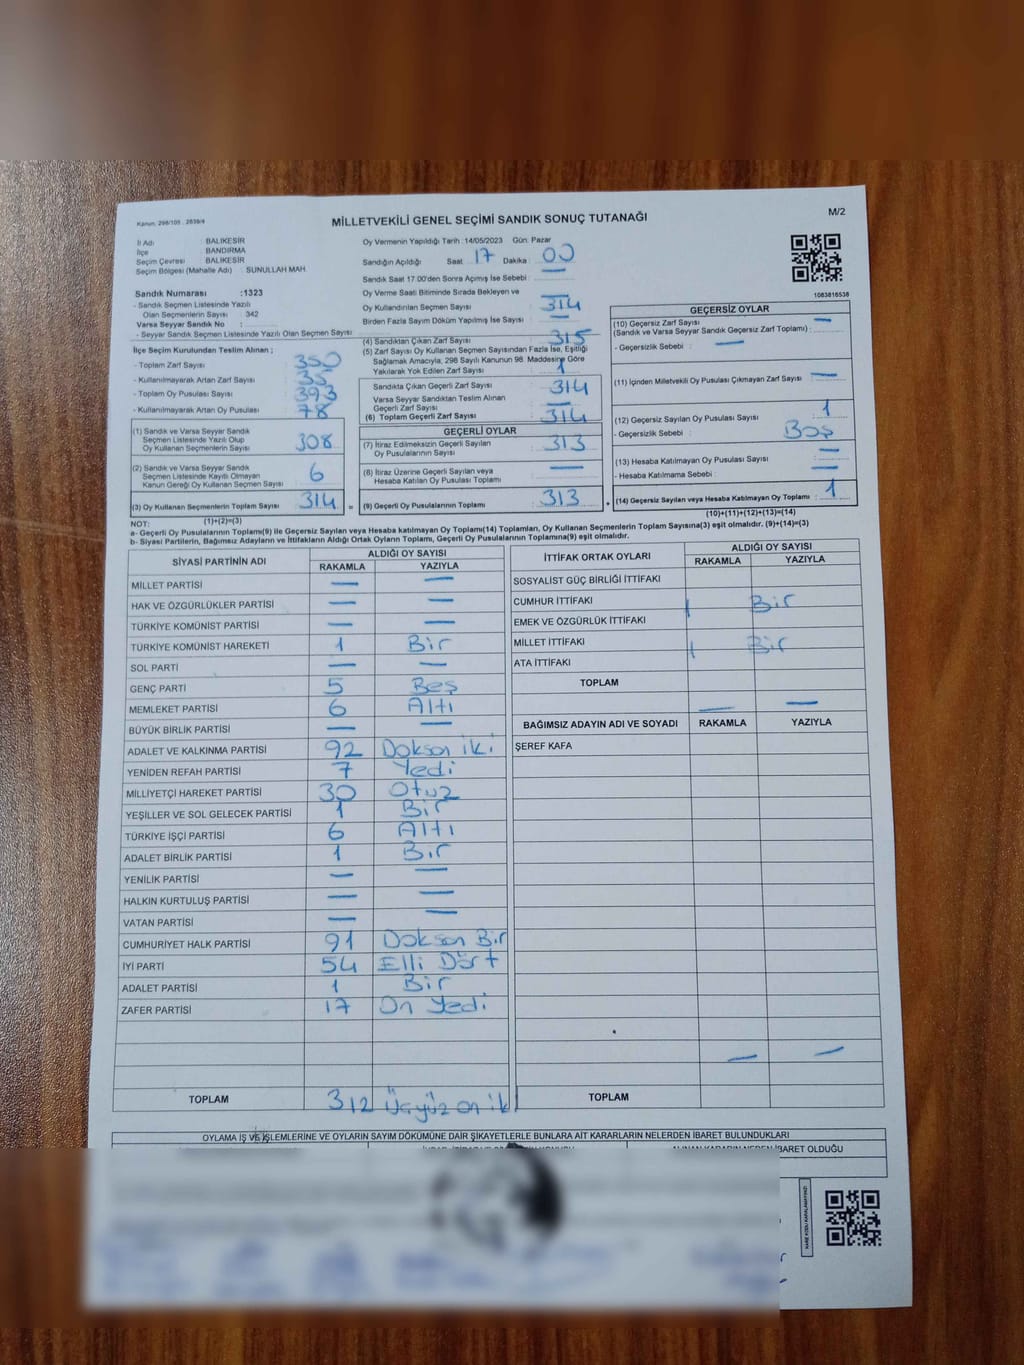 Kanun. 298/105 . 2839/4
MİLLETVEKİLİ GENEL SEÇİMİ SANDIK SONUÇ TUTANAĞI
M/2
İl Adı BALIKESİR
İlçe BANDIRMA
Seçim Çevresi BALIKESİR
Seçim Bölgesi (Mahalle Adı) SUNULLAH MAH.
Sandık Numarası :1323
- Sandık Seçmen Listesinde Yazılı
Olan Seçmenlerin Sayısı : 342
Varsa Seyyar Sandık No :
- Seyyar Sandık Seçmen Listesinde Yazılı Olan Seçmen Sayısı :
Oy Vermenin Yapıldığı Tarih : 14/05/2023 Gün. Pazar
Sandığın Açıldığı Saat 17 Dakika : 00
Sandık Saat 17.00'den Sonra Açımış İse Sebebi : —
Oy Verme Saati Bitiminde Sırada Bekleyen ve
Oy Kullandırılan Seçmen Sayısı : 314
Birden Fazla Sayım Döküm Yapılmış İse Sayısı : —
1083816538
İlçe Seçim Kurulundan Teslim Alınan ;
- Toplam Zarf Sayısı 350
- Kullanılmayarak Artan Zarf Sayısı 35
- Toplam Oy Pusulası Sayısı 393
- Kullanılmayarak Artan Oy Pusulası 78
(1) Sandık ve Varsa Seyyar Sandık
Seçmen Listesinde Yazılı Olup
Oy Kullanan Seçmenlerin Sayısı 308
(2) Sandık ve Varsa Seyyar Sandık
Seçmen Listesinde Kayıtlı Olmayan
Kanun Gereği Oy Kullanan Seçmen Sayısı 6
(3) Oy Kullanan Seçmenlerin Toplam Sayısı 314
(1)+(2)=(3)
(4) Sandıktan Çıkan Zarf Sayısı 315
(5) Zarf Sayısı Oy Kullanan Seçmen Sayısından Fazla İse, Eşitliği
Sağlamak Amacıyla, 298 Sayılı Kanunun 98. Maddesine Göre
Yakılarak Yok Edilen Zarf Sayısı 1
Sandıkta Çıkan Geçerli Zarf Sayısı 314
Varsa Seyyar Sandıktan Teslim Alınan
Geçerli Zarf Sayısı —
(6) Toplam Geçerli Zarf Sayısı 314
GEÇERLİ OYLAR
(7) İtiraz Edilmeksizin Geçerli Sayılan
Oy Pusulalarının Sayısı 313
(8) İtiraz Üzerine Geçerli Sayılan veya
Hesaba Katılan Oy Pusulası Toplamı —
= (9) Geçerli Oy Pusulalarının Toplamı 313
GEÇERSİZ OYLAR
(10) Geçersiz Zarf Sayısı —
(Sandık ve Varsa Seyyar Sandık Geçersiz Zarf Toplamı) :
- Geçersizlik Sebebi : —
(11) İçinden Milletvekili Oy Pusulası Çıkmayan Zarf Sayısı : —
(12) Geçersiz Sayılan Oy Pusulası Sayısı : 1
- Geçersizlik Sebebi : Boş
(13) Hesaba Katılmayan Oy Pusulası Sayısı : —
- Hesaba Katılmama Sebebi : —
+ (14) Geçersiz Sayılan veya Hesaba Katılmayan Oy Toplamı : 1
(10)+(11)+(12)+(13)=(14)
NOT:
a- Geçerli Oy Pusulalarının Toplamı(9) ile Geçersiz Sayılan veya Hesaba katılmayan Oy Toplamı(14) Toplamları, Oy Kullanan Seçmenlerin Toplam Sayısına(3) eşit olmalıdır. (9)+(14)=(3)
b- Siyasi Partilerin, Bağımsız Adayların ve İttifakların Aldığı Ortak Oyların Toplamı, Geçerli Oy Pusulalarının Toplamına(9) eşit olmalıdır.
SİYASİ PARTİNİN ADI ALDIĞI OY SAYISI
RAKAMLA YAZIYLA
MİLLET PARTİSİ — —
HAK VE ÖZGÜRLÜKLER PARTİSİ — —
TÜRKİYE KOMÜNİST PARTİSİ — —
TÜRKİYE KOMÜNİST HAREKETİ 1 Bir
SOL PARTİ — —
GENÇ PARTİ 5 Beş
MEMLEKET PARTİSİ 6 Altı
BÜYÜK BİRLİK PARTİSİ — —
ADALET VE KALKINMA PARTİSİ 92 Doksan iki
YENİDEN REFAH PARTİSİ 7 Yedi
MİLLİYETÇİ HAREKET PARTİSİ 30 Otuz
YEŞİLLER VE SOL GELECEK PARTİSİ 1 Bir
TÜRKİYE İŞÇİ PARTİSİ 6 Altı
ADALET BİRLİK PARTİSİ 1 Bir
YENİLİK PARTİSİ — —
HALKIN KURTULUŞ PARTİSİ — —
VATAN PARTİSİ — —
CUMHURİYET HALK PARTİSİ 91 Doksan Bir
İYİ PARTİ 54 Elli Dört
ADALET PARTİSİ 1 Bir
ZAFER PARTİSİ 17 On Yedi
TOPLAM 312 Üçyüz on ik
İTTİFAK ORTAK OYLARI ALDIĞI OY SAYISI
RAKAMLA YAZIYLA
SOSYALİST GÜÇ BİRLİĞİ İTTİFAKI
CUMHUR İTTİFAKI 1 Bir
EMEK VE ÖZGÜRLÜK İTTİFAKI
MİLLET İTTİFAKI 1 Bir
ATA İTTİFAKI
TOPLAM — —
BAĞIMSIZ ADAYIN ADI VE SOYADI RAKAMLA YAZIYLA
ŞEREF KAFA
— —
TOPLAM
OYLAMA İŞ VE İŞLEMLERİNE VE OYLARIN SAYIM DÖKÜMÜNE DAİR ŞİKAYETLERLE BUNLARA AİT KARARLARIN NELERDEN İBARET BULUNDUKLARI
ALINAN KARARIN NEDEN İBARET OLDUĞU